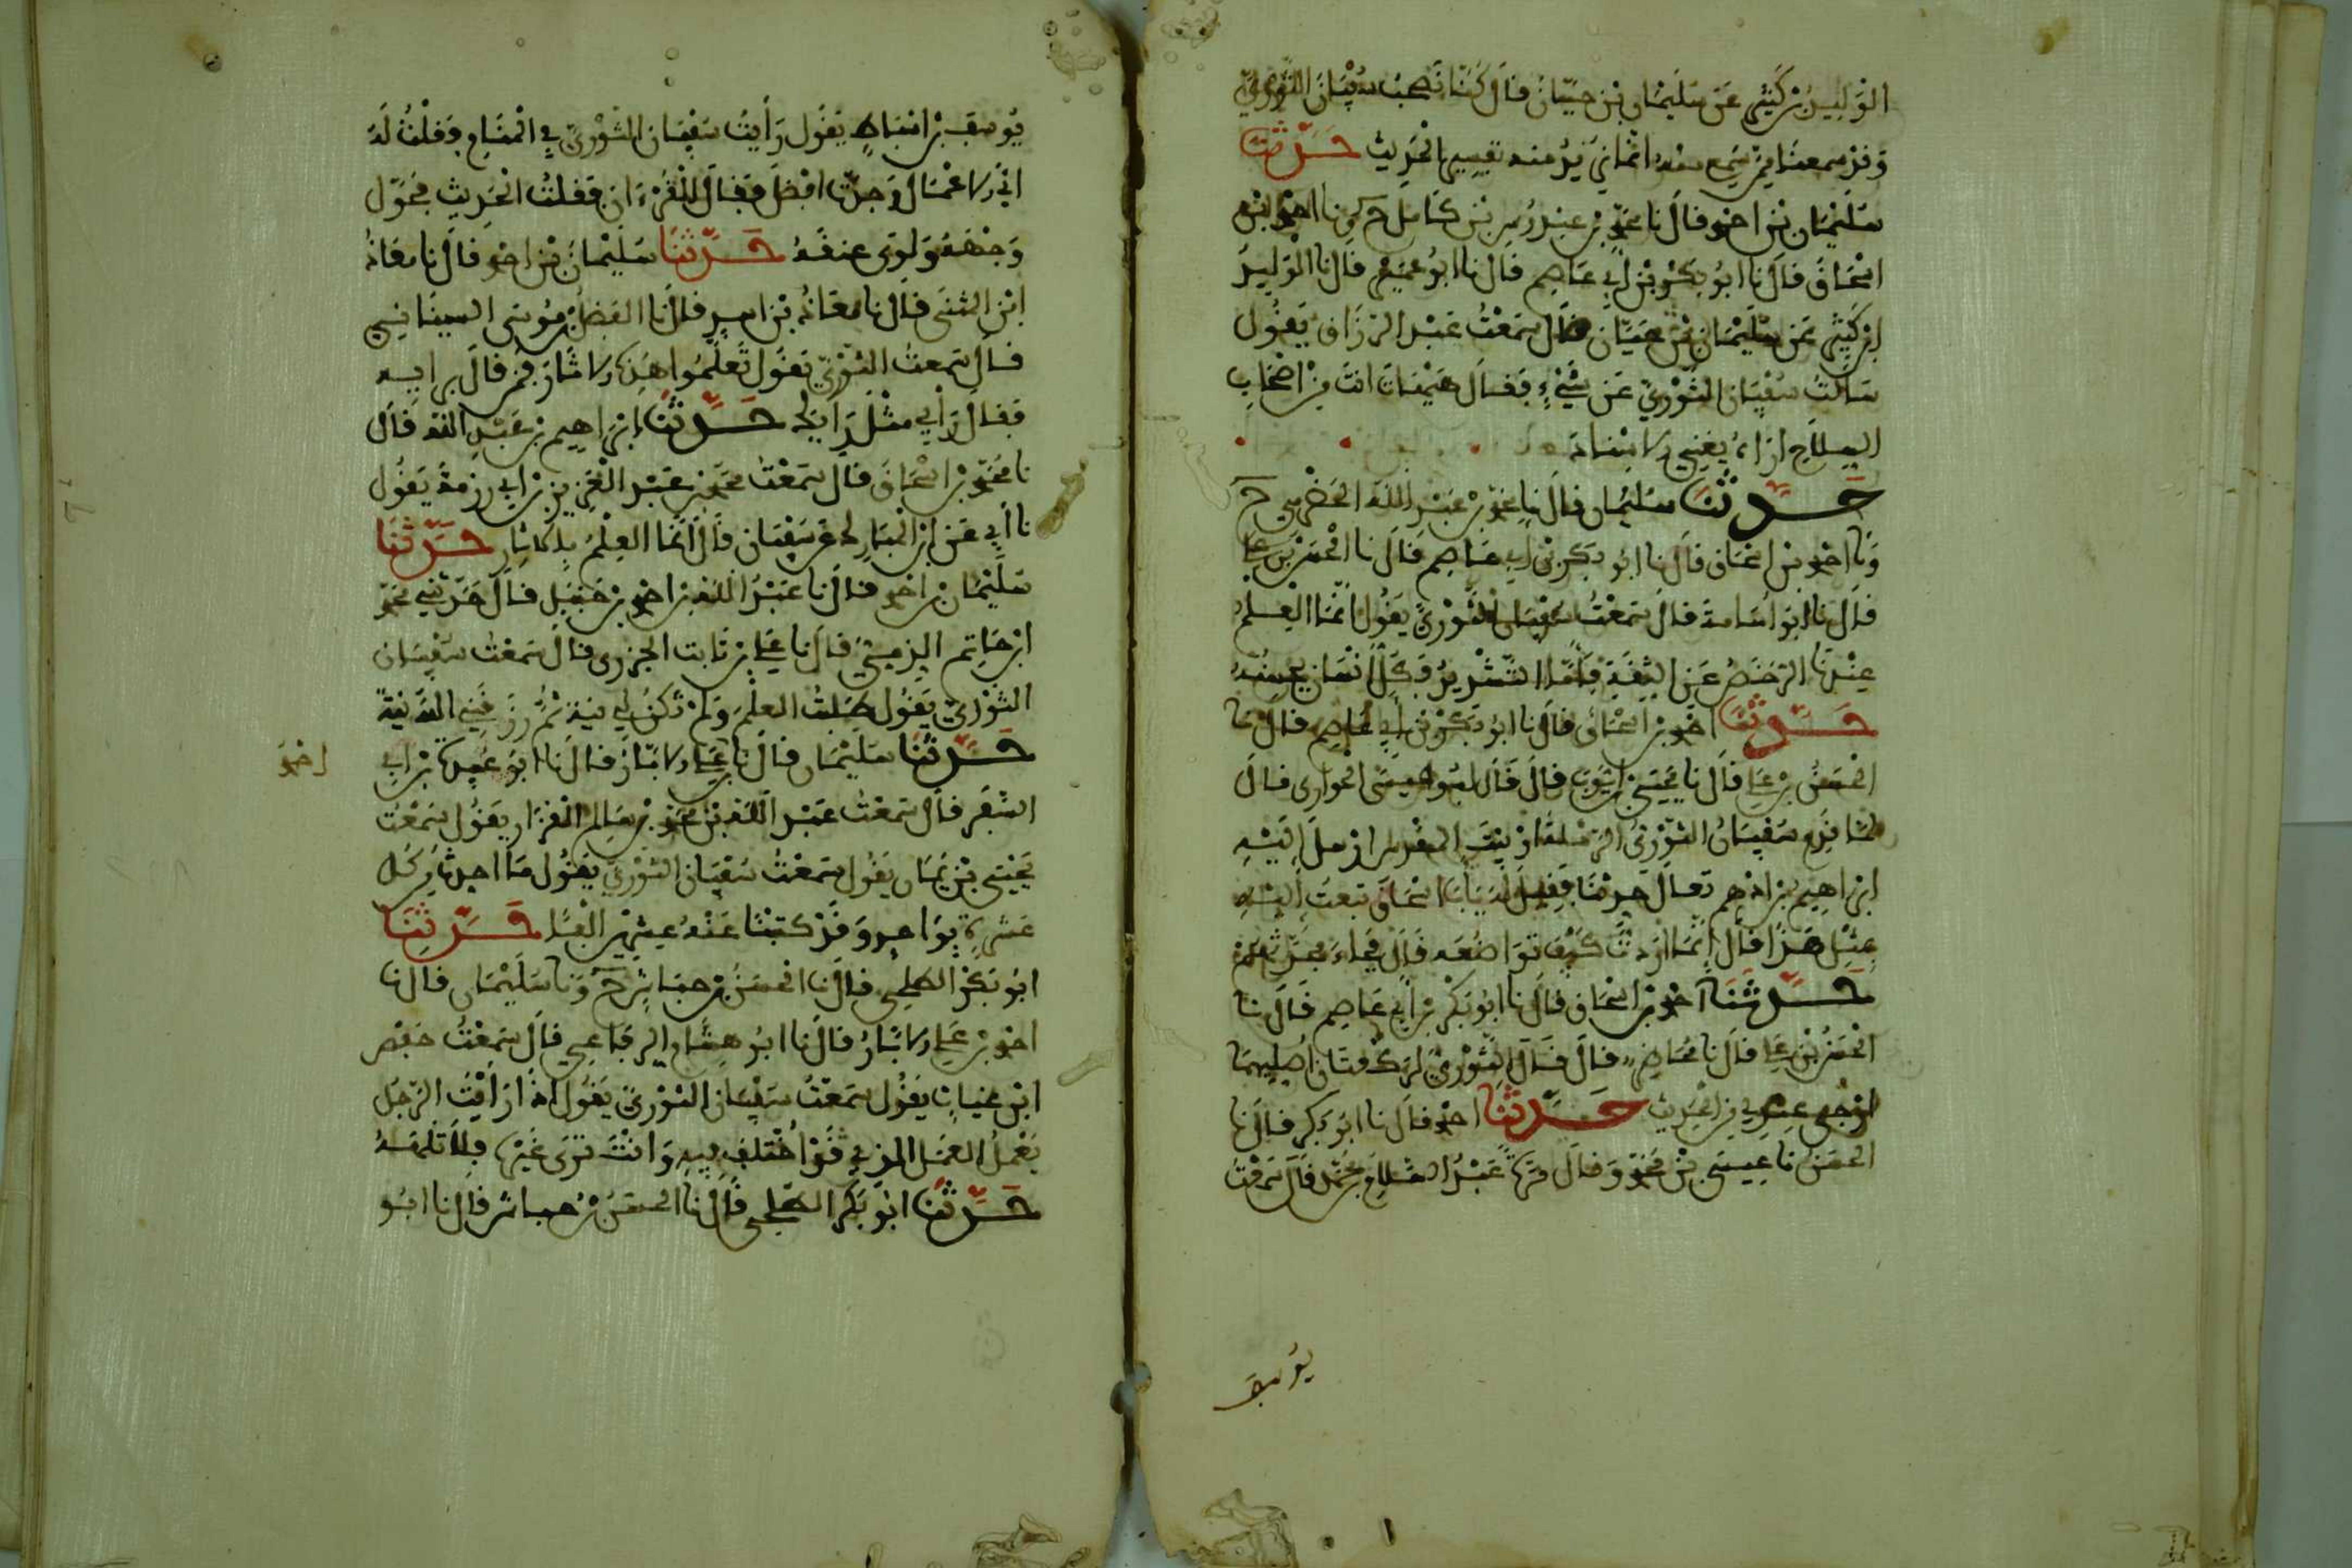 الوليد بن كثير عن سليمان بن حيان قال كنا نصحب سفيان الثوري
وقد سمعنا ممن سمع منه انما نريد منه تفسير الحديث حدثنا
سليمان بن احمد قال نا محمد بن عبدوس بن كامل ح ونا احمد بن
اسحاق قال نا ابو بكر بن ابي عاصم قال نا ابو عمير قال نا الوليد
ابن كثير عن سليمان بن حيان قال سمعت عبد الرزاق يقول
سالت سفيان الثوري عن شيء فقال هيهات انت من اصحاب
السلاح اراه يعني الاسناد
حدثنا سليمان قال نا محمد بن عبد الله الحضرمي ح
ونا احمد بن اسحاق قال نا ابو بكر بن ابي عاصم قال نا الحسن بن علي
قال نا ابو اسامة قال سمعت سفيان الثوري يقول انما العلم
عندنا الرخص عن الثقة فاما التشديد فكل انسان يحسنه
حدثنا احمد بن اسحاق قال نا ابو بكر بن ابي عاصم قال نا
الحسن بن علي قال نا يحيى بن ايوب قال قال ابو عيسى الحواري قال
لما قدم سفيان الثوري الرملة او بيت المقدس ارسل اليه
ابراهيم بن ادهم تعال حدثنا فقيل له يا ابا اسحاق تبعث اليه
بمثل هذا قال انما اردت كيف تواضعه قال فجاء فحدثهم
حدثنا احمد بن اسحاق قال نا ابو بكر بن ابي عاصم قال نا
الحسن بن علي قال نا محاضر قال قال الثوري لركعتان اصليهما
ارجى عندي من الحديث حدثنا احمد قال نا ابو بكر قال نا
الحسن نا عيسى بن محمد وقال مرة عبد السلام بن محمد قال سمعت
يوسف
يوسف بن اسباط يقول رايت سفيان الثوري في المنام فقلت له
اي الاعمال وجدت افضل فقال القرءان فقلت الحديث فحول
وجهه ولوى عنقه حدثنا سليمان بن احمد قال نا معاذ
ابن المثنى قال نا معاذ بن اسد قال نا الفضل بن موسى السيناني
قال سمعت الثوري يقول تعلموا هذه الاثار فمن قال برايه
فقال رأيي مثل رايك حدثنا ابراهيم بن عبد الله قال
نا محمد بن اسحاق قال سمعت محمد بن عبد العزيز بن ابي رزمة يقول
نا أبي عن ابن المبارك عن سفيان قال انما العلم بالاثار حدثنا
سليمان بن احمد قال نا عبد الله بن احمد بن حنبل قال حدثني محمد
ابن حاتم الزمي قال نا علي بن ثابت الجزري قال سمعت سفيان
الثوري يقول طلبت العلم ولم تكن لي نية ثم رزقني الله نية
حدثنا سليمان قال نا علي الابار قال نا ابو عبيدة بن ابي
احمد
السفر قال سمعت عبد الله بن محمد بن سالم القزاز يقول سمعت
يحيى بن يمان يقول سمعت سفيان الثوري يقول ما احدث من كل
عشرة بواحد وقد كتبنا عنه عشرين الفا حدثنا
ابو بكر الطلحي قال نا الحسن بن حباش ح ونا سليمان قال نا
احمد بن علي الابار قال نا ابو هشام الرفاعي قال سمعت حفص
ابن غياث يقول سمعت سفيان الثوري يقول اذا رأيت الرجل
يعمل العمل الذي قد اختلف فيه وانت ترى غيره فلا تلمه
حدثنا ابو بكر الطلحي قال نا الحسن بن حباش قال نا ابو